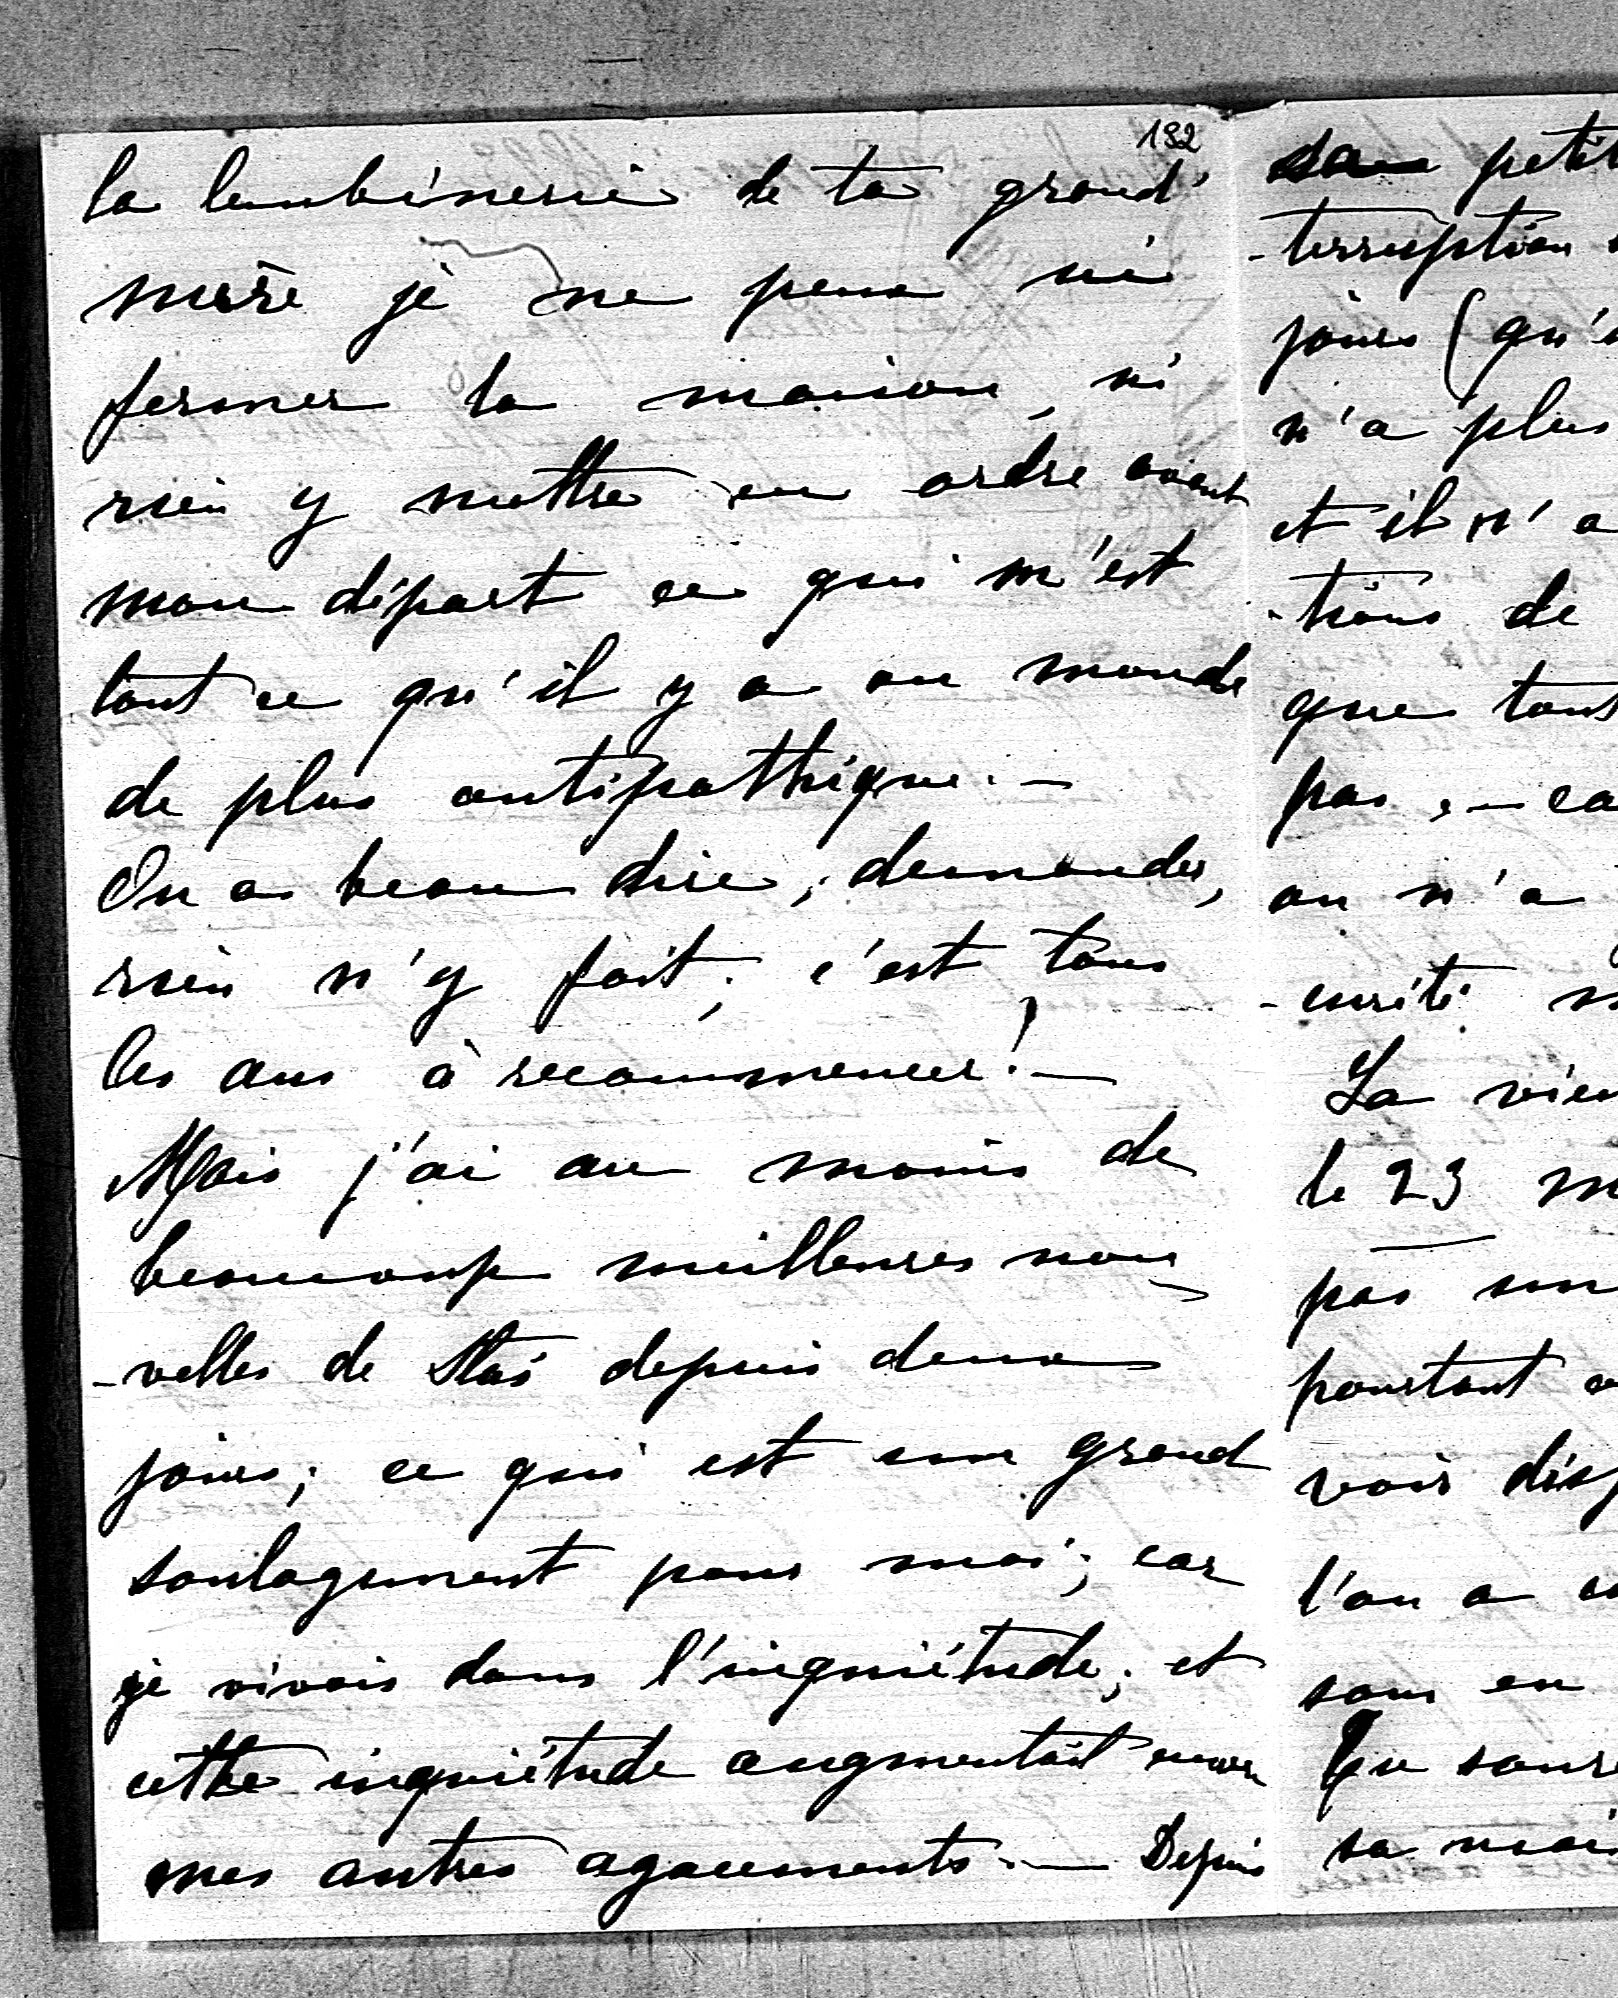 132
la lambinerie de ta grand'
mère je ne peux ni
fermer la maison, ni
rien y mettre en ordre avant
mon départ ce qui m'est
tout ce qu'il y a au monde
de plus antipathique. —
On a beau dire, demander,
rien n'y fait; c'est tous
les ans à recommencer! —
Mais j'ai au moins de
beaucoup meilleures nou
-velles de Stas depuis deux
jours; ce qui est un grand
soulagement pour moi; car
je vivais dans l'inquiétude; et
cette inquiétude augmentait encore
mes autres agacements. — Depuis
sa petit
-terruption
jours (qu'
n'a plus
et il n'a
-tions de
que tout
pas, — ca
on n'a
-curité
La vien
le 23 m
pas
pourtant
voir disp
l'on a
sous en
Tu
sa mai